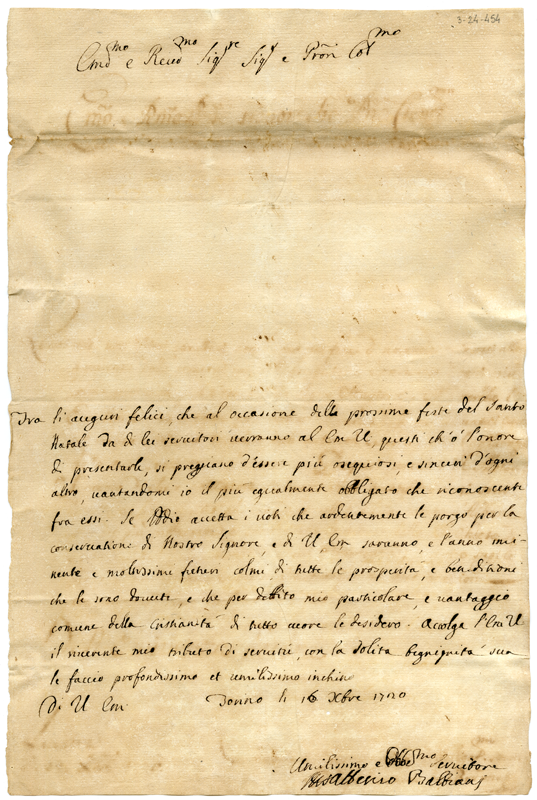 3-24-454
Emo e Revmo Sigre Sigr e Pron Colmo
Fra li auguri felici, che al occasione delle prossime feste del Santo
Natale da di lei servitori verranno al Em U, questi ch'ò l'onore
di presentarle, si pregiano d'essere più osequiosi, e sinceri d'ogni
altro, vantandomi io il più egualmente obbligato che riconoscente
fra essi. Se Iddio accetta i voti che ardentemente le porgo per la
conservatione di Nostro Signore, e di U, Em saranno, e l'anno imi-
nente e moltissimi colmi di tutte le prosperità, e beneditioni
che le sono dovute, e che per debito mio particolare, e vantaggio
comune della Cristianità di tutto cuore le desidero. Acolga l'Em U
il riverente mio tributo di servitù, con la solita begnignità sua
le faccio profondissimo et umilissimo inchino
Di U Em Donno li 16 Xbre 1720
Umilissimo e Obbmo servitore
Balbiani